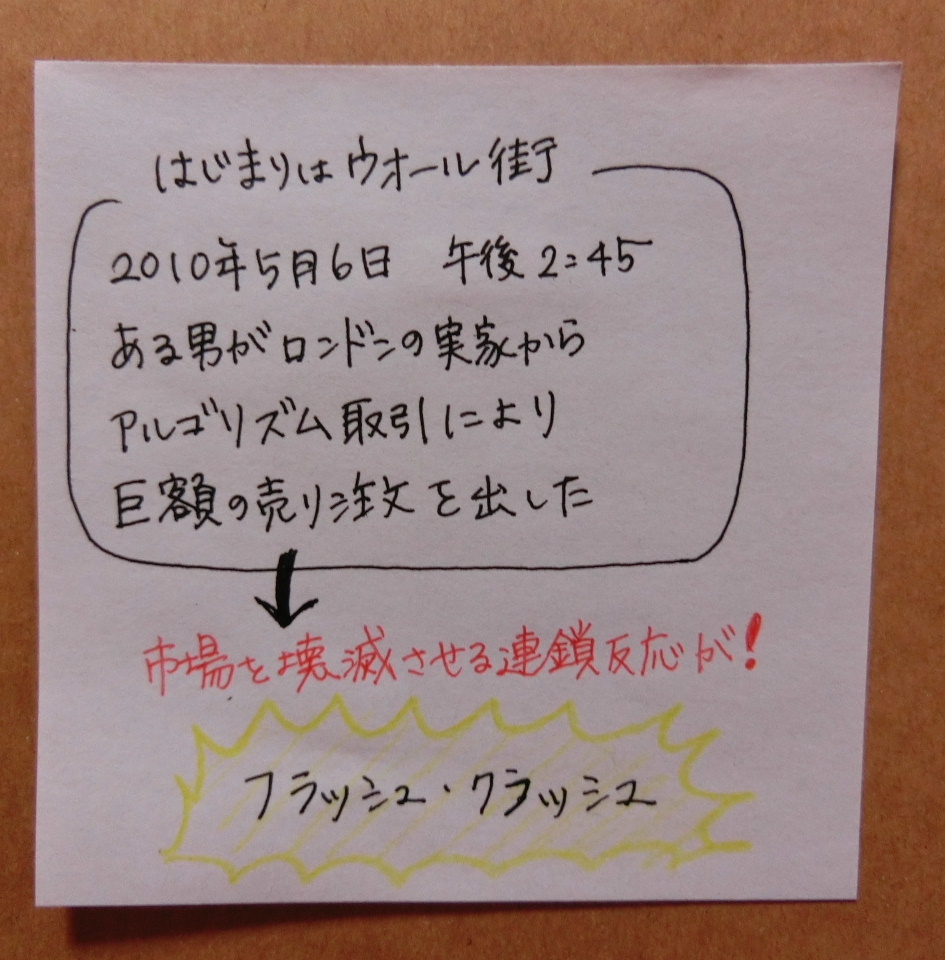 はじまりはウオール街
2010年5月6日 午後2:45
ある男がロンドンの実家から
アルゴリズム取引により
巨額の売り注文を出した
市場を壊滅させる連鎖反応が!
フラッシュ・クラッシュ